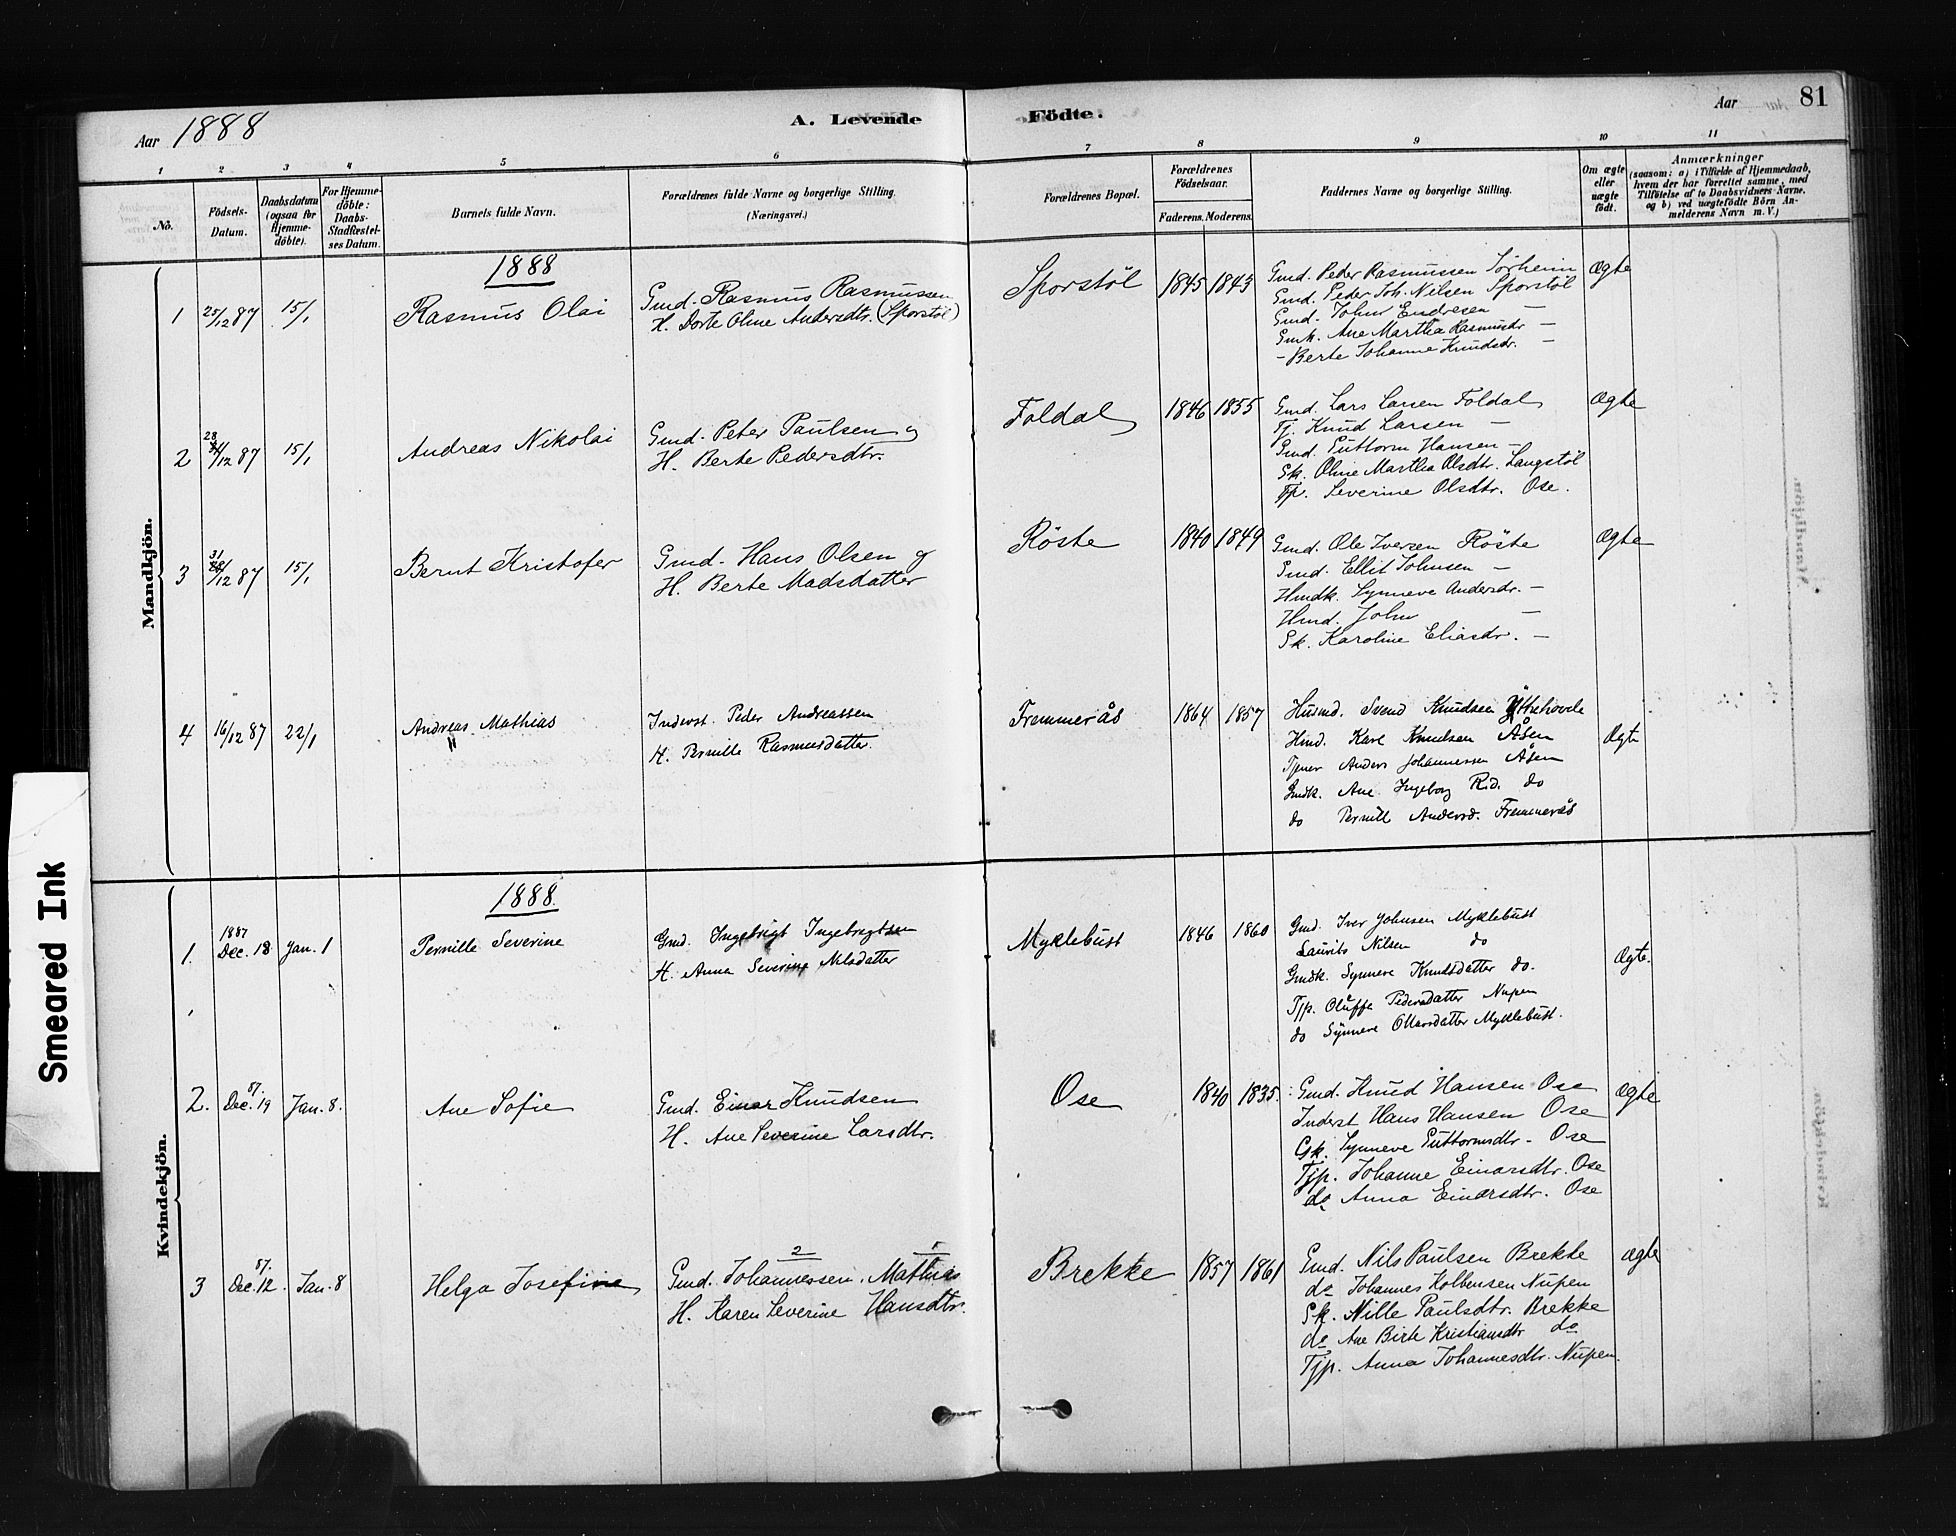 Aar 1888
A. Levende Födte.
Aar
81
1 2 3 4 5 6 7 8 9 10 11
No.
Födsels-Datum.
Daabsdatum (ogsaa for Hjemme-döbte).
For Hjemme-döbte: Daabs-Stadfæstel-ses Datum.
Barnets fulde Navn.
Forældrenes fulde Navne og borgerlige Stilling.
(Næringsvei.)
Forældrenes Bopæl.
Forældrenes Födselsaar.
Faderens. Moderens.
Faddernes Navne og borgerlige Stilling.
Om ægte eller uægte födt.
Anmærkninger
(saasom: a) i Tilfælde af Hjemmedaab,
hvem der har forrettet samme, med
Tilföielse af to Daabsvidners Navne.
og b) ved uægtefödte Börn An-
melderens Navn m. V.)
Mandkjön.
1888
1 25/12 87 15/1 Rasmus Olai
Gmd. Rasmus Rasmussen
H. Dorte Oline Andersdtr. (Sporstöl)
Sporstöl 1845 1843
Gmd. Peder Rasmussen Sörheim
Gmd. Peder Joh. Nilsen Sporstöl
Gmd. Johns Endresen —
Gmk. Ane Martha Rasmusdr —
- Berte Johanne Knudsdr. —
Ægte
2 28/12 87 15/1 Andreas Nikolai
Gmd. Peter Paulsen og
H. Berte Pedersdtr.
Foldal 1846 1855
Gmd. Lars Larsen Foldal
Tj. Knud Larsen —
Gmd. Guttorm Hansen —
Sk. Oline Martha Olsdtr. Langstöl
Tjp. Severine Olsdtr. Ose.
Ægte
3 31/12 87 15/1 Bernt Kristofer
Gmd. Hans Olsen og
H. Berte Madsdatter
Röste 1840 1849
Gmd. Ole Iversen Röste
Gmd. Ellit Johnsen —
Hmdk. Synneve Andersdr. —
Hmd. John —
Sk. Karoline Eliasdr. —
Ægte
4 16/12 87 22/1 Andreas Mathias
Inderst. Peder Andreassen
H. Pernille Rasmusdatter.
Fremmerås 1864 1857
Husmd. Svend Knudsen Yttrehovde
Hmd. Karl Knudsen Åsen
Tjener Anders Johannessen Åsen
Gmdk. Ane Ingeborg R.d. do
do Pernill Andersd. Fremmerås
Ægte
Kvindekjön.
1888.
1. 1887 Dec. 18 Jan. 1 Pernille Severine
Gmd. Ingebrigt Ingebrigtsen
H. Anna Severine Nilsdatter
Myklebust 1846 1860
Gmd. Iver Johnsen Myklebust
Laurits Nilsen do
Gmdk. Synneve Knudsdatter do.
Tjp. Oluffe Pedersdatter Nupen
do Synneve Ottarsdatter Myklebust.
Ægte.
2. 87. Dec. 19 Jan. 8. Ane Sofie
Gmd. Einar Knudsen
H. Ane Severine Larsdtr.
Ose 1840 1835.
Gmd. Knud Hansen Ose
Inderst Hans Hansen Ose
Gk. Synneve Guttormsdtr. Ose
Tjp. Johanne Einarsdtr. Ose
do Anna Einarsdtr. Ose
Ægte
3 87. Dec. 12. Jan. 8 Helga Josefine
2 1
Gmd. Johannessen, Mathias
H. Karen Severine Hansdtr.
Brekke 1857 1861
Gmd. Nils Paulsen Brekke
do Johannes Kolbensen Nupen
Sk. Nille Paulsdtr. Brekke
do Ane Birte Kristiansdtr do
Tjp. Anna Johannesdtr. Nupen.
Ægte
Smeared Ink